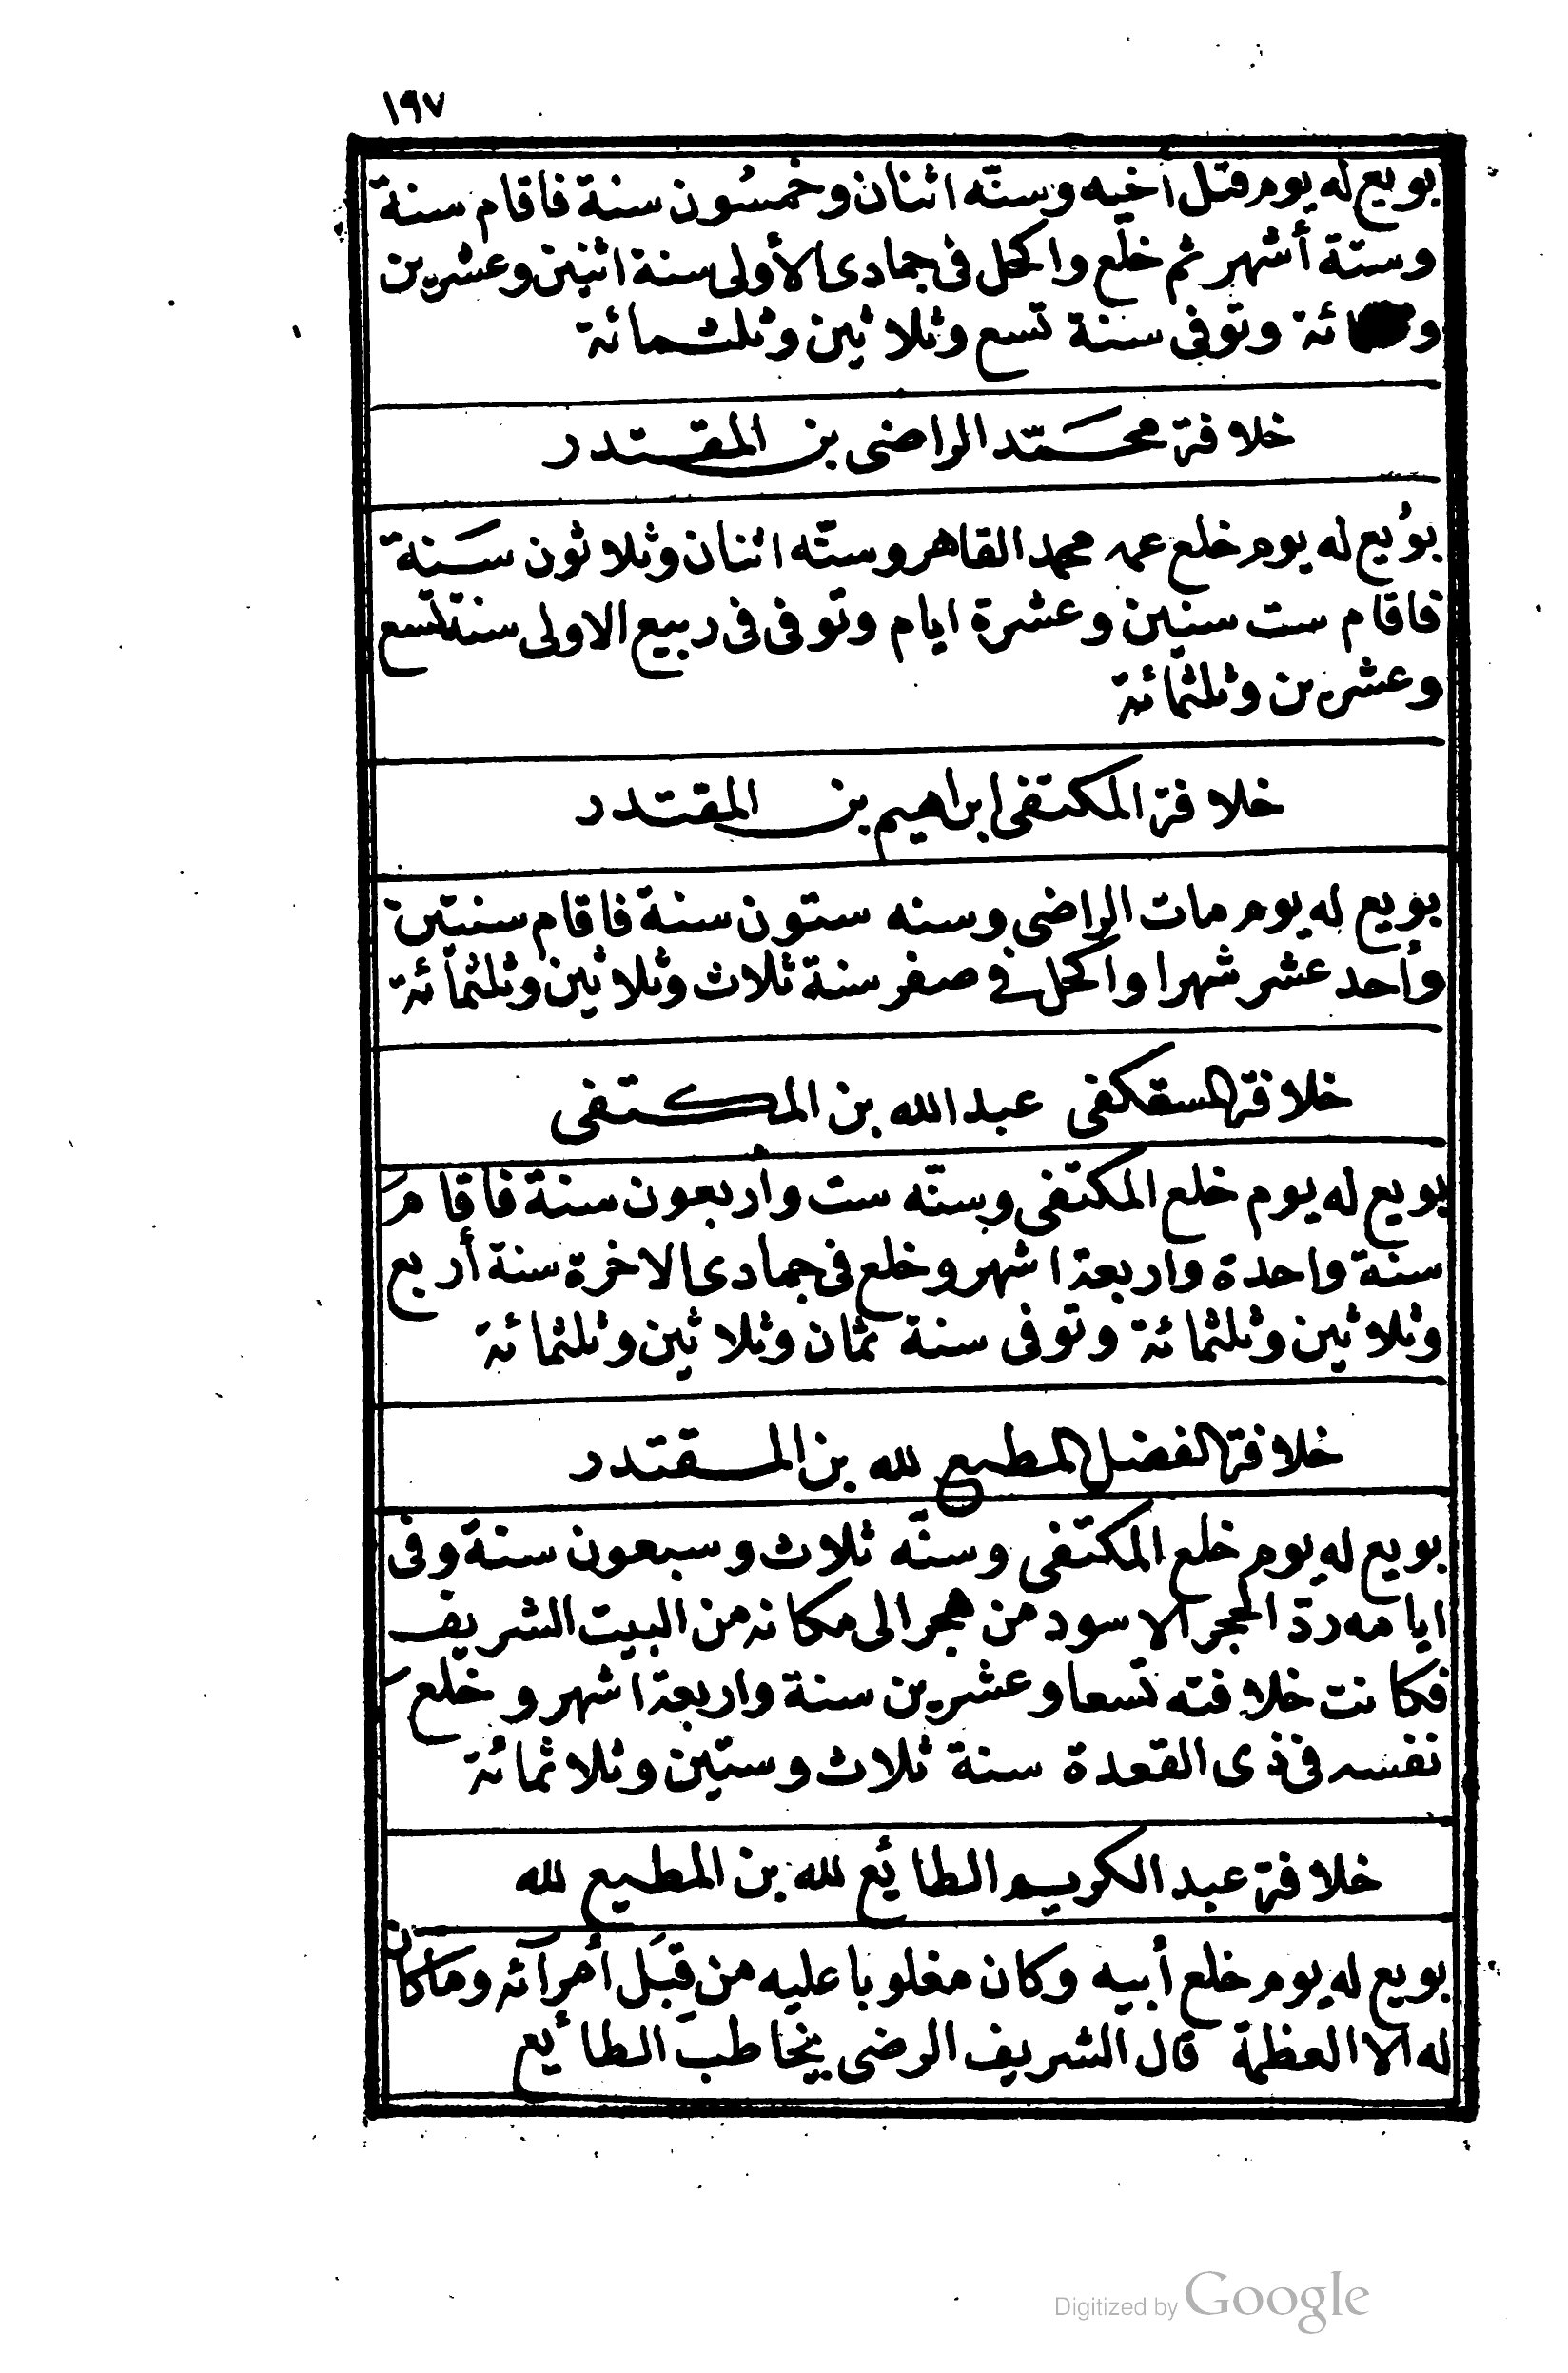 ١٩٧
بويع له يوم قتل اخيه وسنّه اثنان وخمسُون سنة فاقام سنة
وستة أشهر ثم خلع واكحل فى جمادى الأولى سنة اثنين وعشرين
وتوفى سنة تسع وثلاثين وثلثمائة
خلافة محمّد الراضى بن المقتدر
بوُيع له يوم خلع عمه محمد القاهر وسنّه اثنان وثلاثون سَنة
فاقام ست سنين وعشرة ايام وتوفى فى ربيع الاولى سنة تسع
وعشرين وثلثمائة
خلافة المكتفى ابراهيم بن المقتدر
بويع له يوم مات الراضى وسنه ستون سنة فاقام سنتين
وأحد عشر شهرا واكحل في صفر سنة ثلاث وثلاثين وثلثمائة
خلافة المستكفى عبد الله بن المكتفى
بويع له يوم خلع المكتفى وسنّه ست واربعون سنة فاقام
سنة واحدة واربعة اشهر وخلع فى جمادى الاخرة سنة أربع
وثلاثين وثلثمائة وتوفى سنة ثمان وثلاثين وثلثمائة
خلافة الفضل المطيع لله بن المقتدر
بويع له يوم خلع المكتفى وسنّه ثلاث وسبعون سنة وفى
ايامه ردّ الحجر الاسود من هجر الى مكانه من البيت الشريف
فكانت خلافته تسعا وعشرين سنة واربعة اشهر وخلع
نفسه فى ذى القعدة سنة ثلاث وستين وثلاثمائة
خلافة عبد الكريم الطائع لله بن المطيع لله
بويع له يوم خلع أبيه وكان مغلوبا عليه من قِبَل أمرآئه وما كان
له الا العظمة قال الشريف الرضى يخاطب الطائع
Digitized by Google